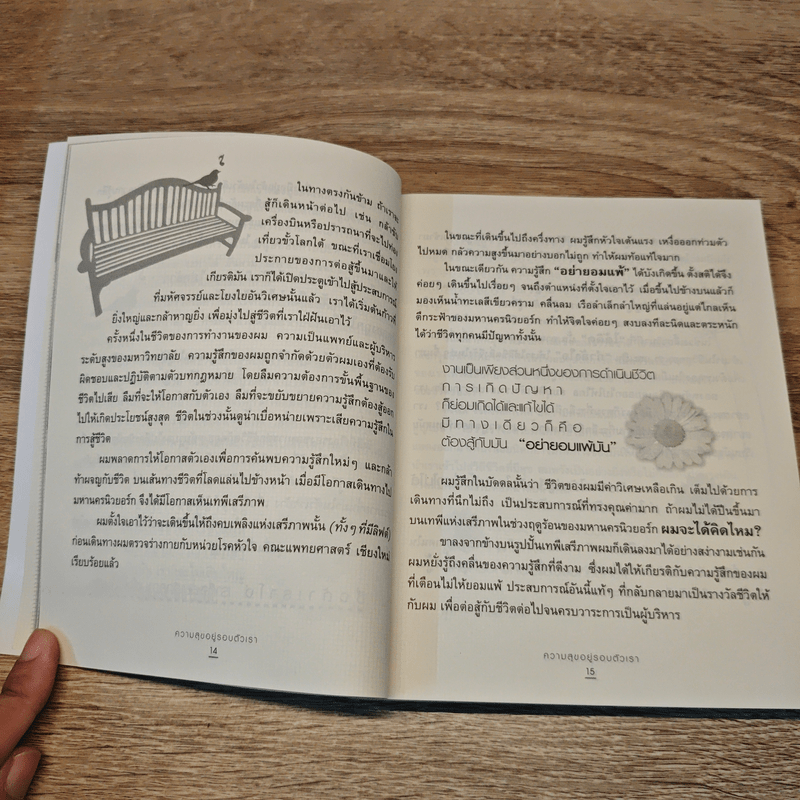 ในทางตรงกันข้าม ถ้าเราจะ
สู้ก็เดินหน้าต่อไป เช่น กล้าขึ้น
เครื่องบินหรือปรารถนาที่จะไปท่อง
เที่ยวขั้วโลกใต้ ขณะที่เราเชื่อมโยง
ประกายของการต่อสู้ขึ้นมาและให้
เกียรติมัน เราก็ได้เปิดประตูเข้าไปสู่ประสบการณ์
ที่มหัศจรรย์และโยงใยอันวิเศษนั้นแล้ว เราได้เริ่มต้นก้าวที่
ยิ่งใหญ่และกล้าหาญยิ่ง เพื่อมุ่งไปสู่ชีวิตที่เราใฝ่ฝันเอาไว้
ครั้งหนึ่งในชีวิตของการทำงานของผม ความเป็นแพทย์และผู้บริหาร
ระดับสูงของมหาวิทยาลัย ความรู้สึกของผมถูกจำกัดด้วยตัวผมเองที่ต้องรับ
ผิดชอบและปฏิบัติตามตัวบทกฎหมาย โดยลืมความต้องการขั้นพื้นฐานของ
ชีวิตไปเสีย ลืมที่จะให้โอกาสกับตัวเอง ลืมที่จะขยับขยายความรู้สึกต้องสู้ออก
ไปให้เกิดประโยชน์สูงสุด ชีวิตในช่วงนั้นดูน่าเบื่อหน่ายเพราะเสียความรู้สึกใน
การสู้ชีวิต
ผมพลาดการให้โอกาสตัวเองเพื่อการค้นพบความรู้สึกใหม่ๆ และกล้า
ท้าผจญกับชีวิต บนเส้นทางชีวิตที่โลดแล่นไปข้างหน้า เมื่อมีโอกาสเดินทางไป
มหานครนิวยอร์ก จึงได้มีโอกาสเห็นเทพีเสรีภาพ
ผมตั้งใจเอาไว้ว่าจะเดินขึ้นให้ถึงคบเพลิงแห่งเสรีภาพนั้น (ทั้งๆ ที่มีลิฟต์)
ก่อนเดินทางผมตรวจร่างกายกับหน่วยโรคหัวใจ คณะแพทยศาสตร์ เชียงใหม่
เรียบร้อยแล้ว
ความสุขอยู่รอบตัวเรา
14
ในขณะที่เดินขึ้นไปถึงครึ่งทาง ผมรู้สึกหัวใจเต้นแรง เหงื่อออกท่วมตัว
ไปหมด กลัวความสูงขึ้นมาอย่างบอกไม่ถูก ทำให้ผมท้อแท้ใจมาก
ในขณะเดียวกัน ความรู้สึก "อย่ายอมแพ้" ได้บังเกิดขึ้น ตั้งสติได้จึง
ค่อยๆ เดินขึ้นไปเรื่อยๆ จนถึงตำแหน่งที่ตั้งใจเอาไว้ เมื่อขึ้นไปข้างบนแล้วก็
มองเห็นน้ำทะเลสีเขียวคราม คลื่นลม เรือลำเล็กลำใหญ่ที่แล่นอยู่แต่ไกลเห็น
ตึกระฟ้าของมหานครนิวยอร์ก ทำให้จิตใจค่อยๆ สงบลงทีละนิดและตระหนัก
ได้ว่าชีวิตทุกคนมีปัญหาทั้งนั้น
งานเป็นเพียงส่วนหนึ่งของการดำเนินชีวิต
การเกิดปัญหา
ก็ย่อมเกิดได้และแก้ไขได้
มีทางเดียวก็คือ
ต้องสู้กับมัน "อย่ายอมแพ้มัน"
ผมรู้สึกในบัดดลนั้นว่า ชีวิตของผมมีค่าวิเศษเหลือเกิน เต็มไปด้วยการ
เดินทางที่นึกไม่ถึง เป็นประสบการณ์ที่ทรงคุณค่ามาก ถ้าผมไม่ได้ปีนขึ้นมา
บนเทพีแห่งเสรีภาพในช่วงฤดูร้อนของมหานครนิวยอร์ก ผมจะได้คิดไหม?
ขาลงจากข้างบนรูปปั้นเทพีเสรีภาพผมก็เดินลงมาได้อย่างสง่างามเช่นกัน
ผมหยั่งรู้ถึงคลื่นของความรู้สึกที่ดีงาม ซึ่งผมได้ให้เกียรติกับความรู้สึกของผม
ที่เตือนไม่ให้ยอมแพ้ ประสบการณ์อันนี้แท้ๆ ที่กลับกลายมาเป็นรางวัลชีวิตให้
กับผม เพื่อต่อสู้กับชีวิตต่อไปจนครบวาระการเป็นผู้บริหาร
ความสุขอยู่รอบตัวเรา
15